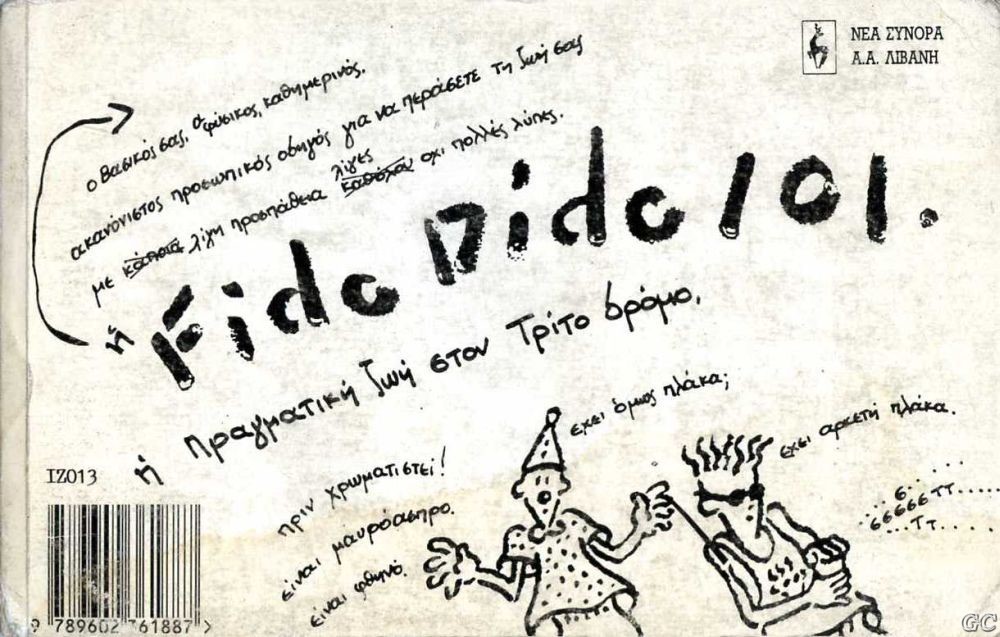 ΝΕΑ ΣΥΝΟΡΑ
Α.Α. ΛΙΒΑΝΗ
ο βασικός σας, ο φυσικός, καθημερινός,
ακανόνιστος προσωπικός οδηγός για να περάσετε τη ζωή σας
με κάποια λίγη προσπάθεια λίγες καθόλου οχι πολλές λύπες.
ή Fido Dido 101.
ή πραγματική ζωή στον Τρίτο δρόμο.
πριν χρωματιστεί!
είναι μαυρόασπρο.
είναι φθηνό.
έχει όμως πλάκα;
έχει αρκετή πλάκα.
IZ013
9 789602 361887 >
GC